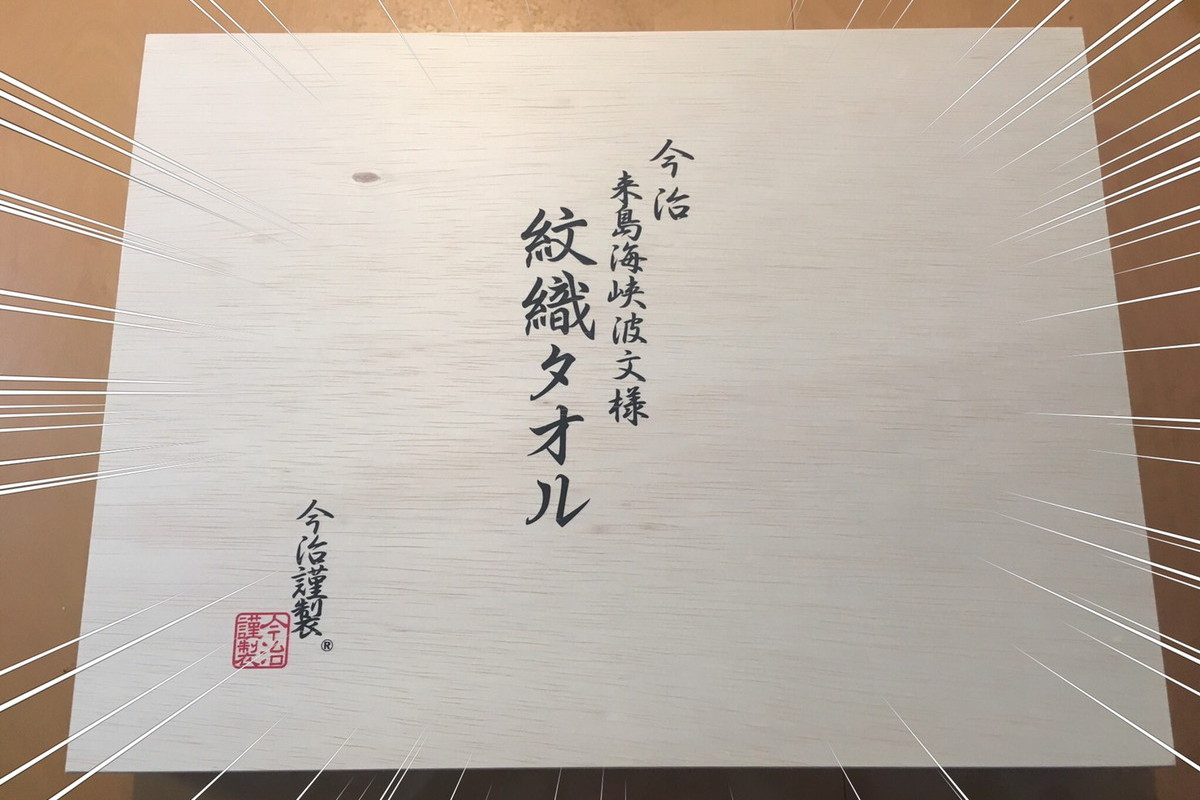 今治
来島海峡波文様
紋織タオル
今治謹製
®
今治
謹製